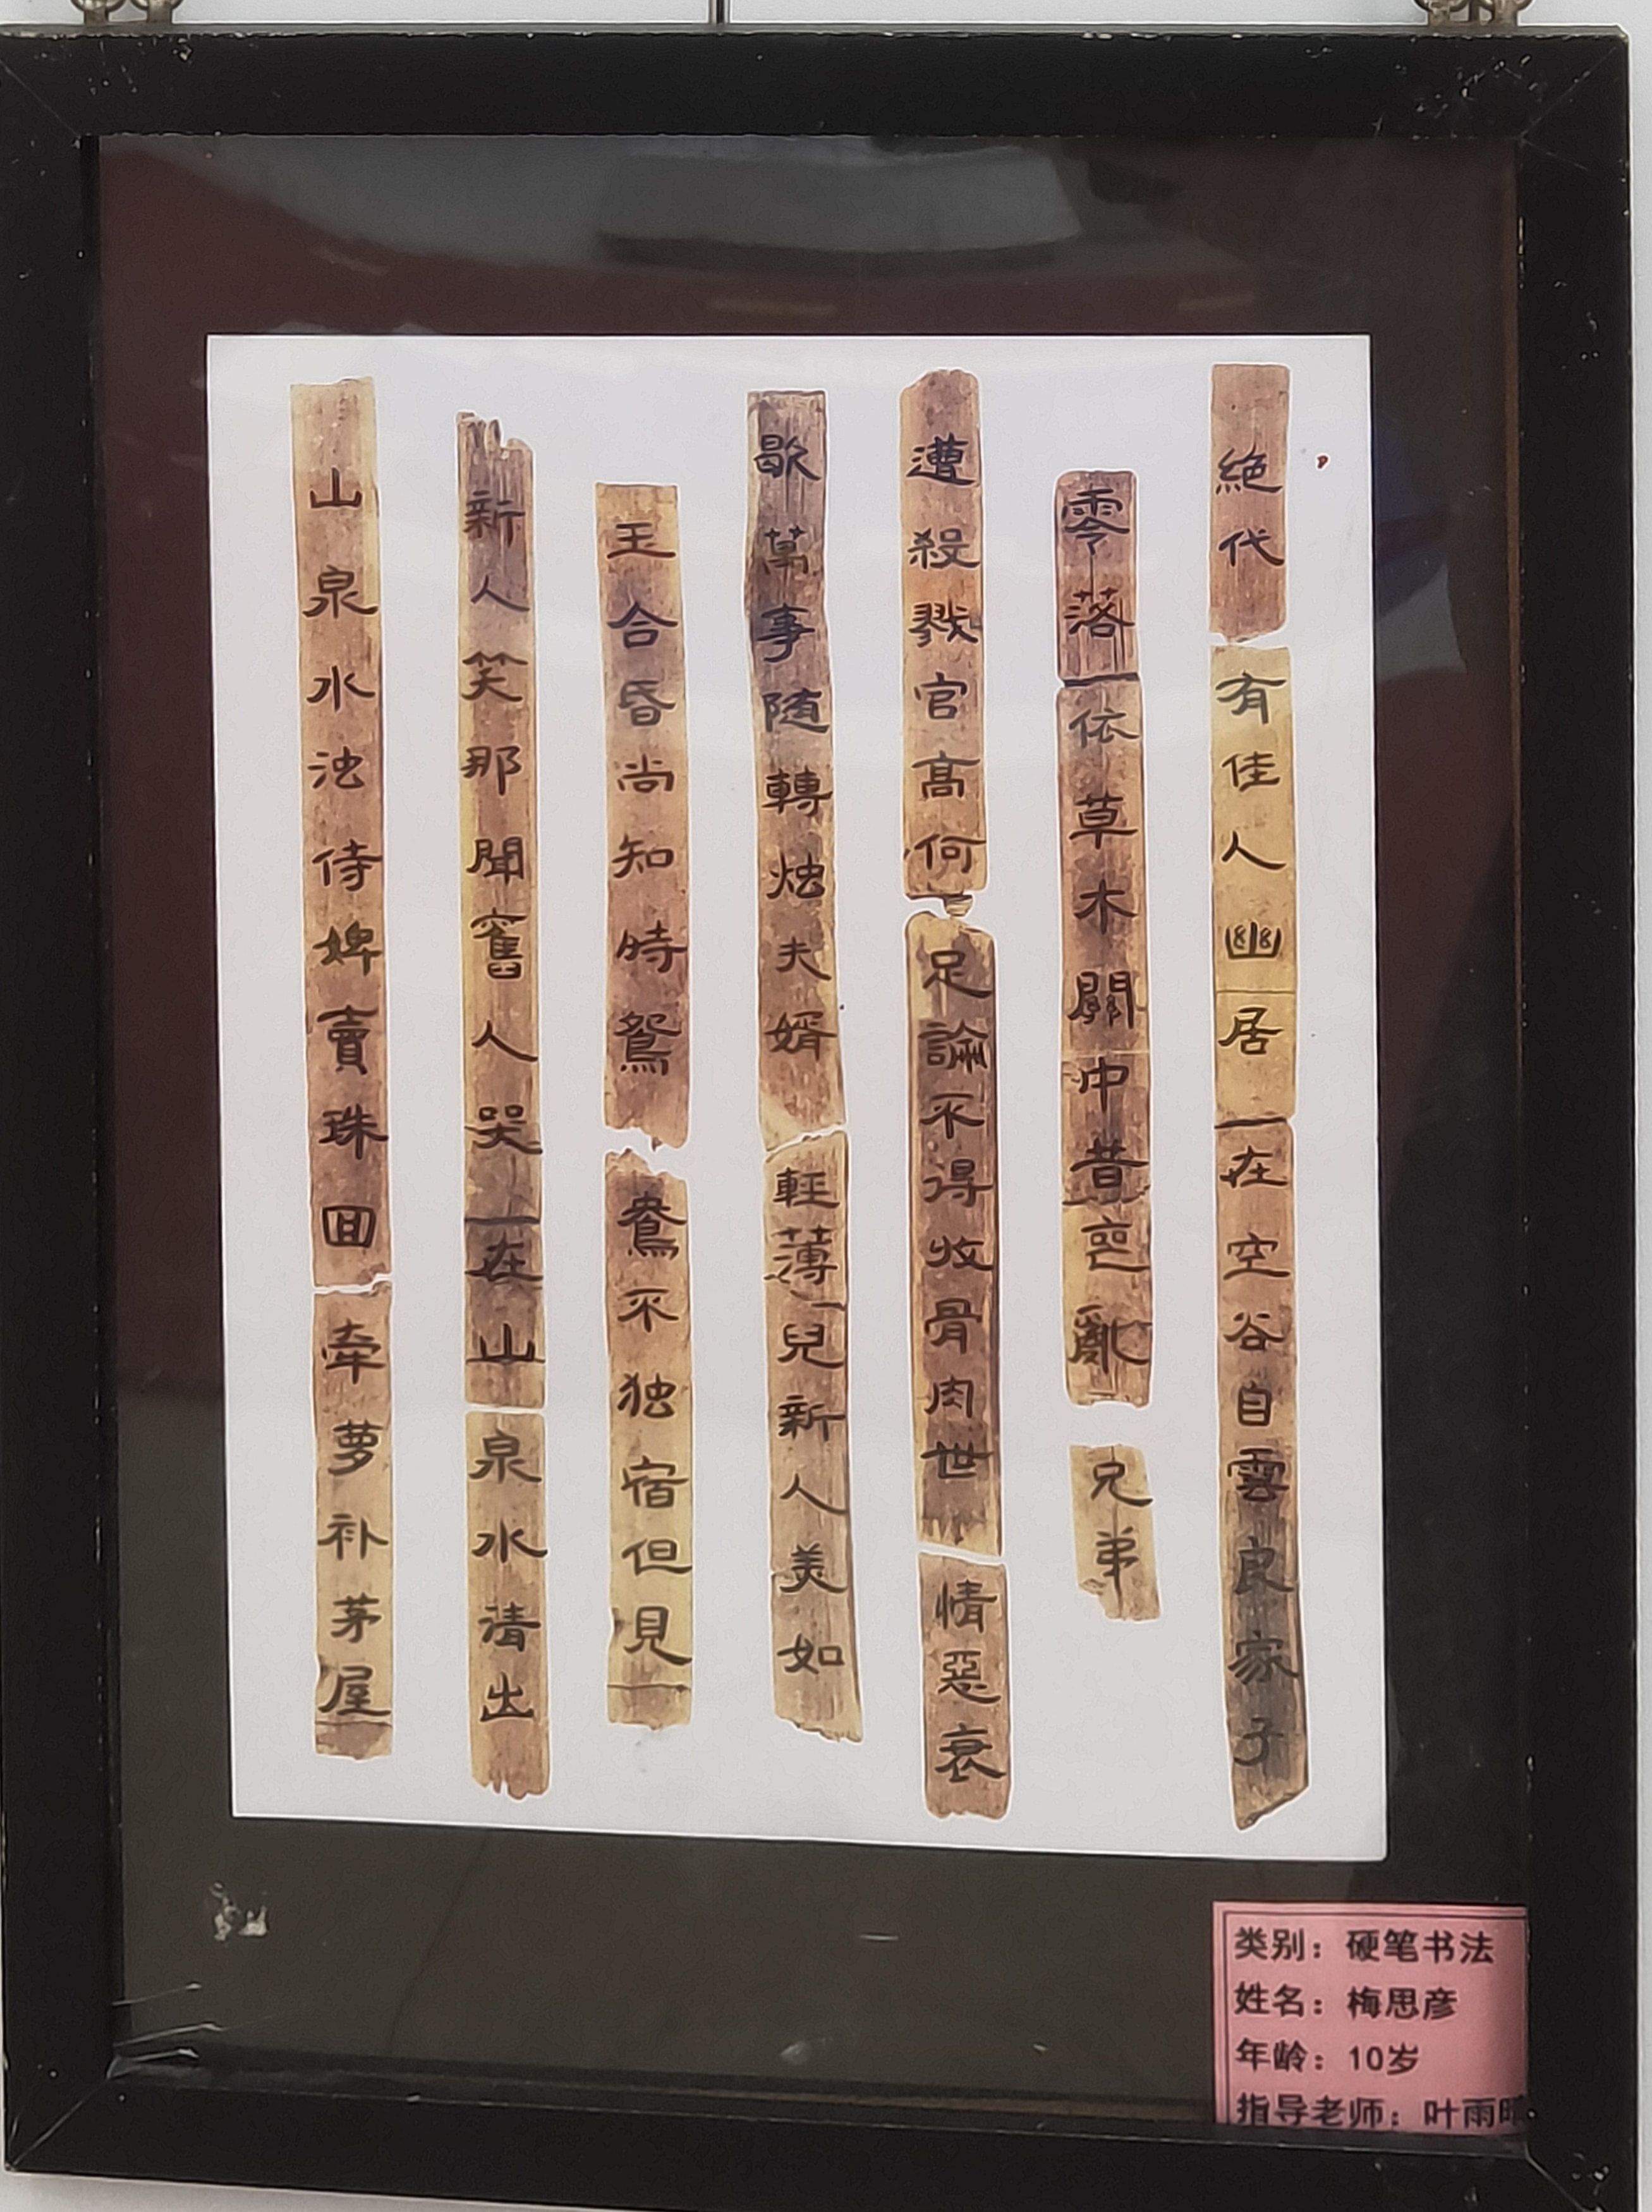 絶代有佳人幽居在空谷自雲良家子
零落依草木關中昔喪亂兄弟
遭殺戮官高何足論不得收骨肉世情惡衰
歇萬事随轉烛夫婿輕薄兒新人美如
玉合昏尚知時鴛鴦不独宿但見
新人笑那聞舊人哭在山泉水清出
山泉水浊侍婢賣珠回牵萝补茅屋
类别：硬笔书法
姓名：梅思彦
年龄：10岁
指导老师：叶雨晴